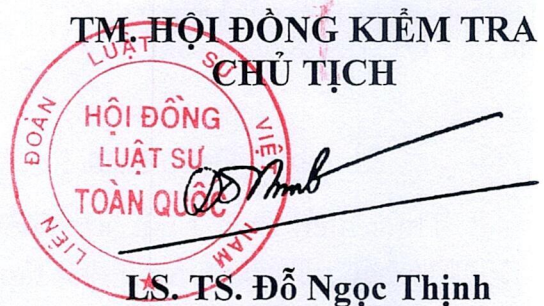 TM. HỘI ĐỒNG KIỂM TRA
CHỦ TỊCH
LIÊN ĐOÀN LUẬT SƯ VIỆT NAM
HỘI ĐỒNG
LUẬT SƯ
TOÀN QUỐC
LS. TS. Đỗ Ngọc Thịnh